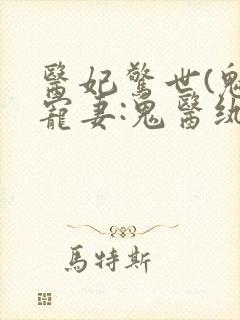 醫妃驚世(鬼
寵妻:鬼醫紈
馬特斯